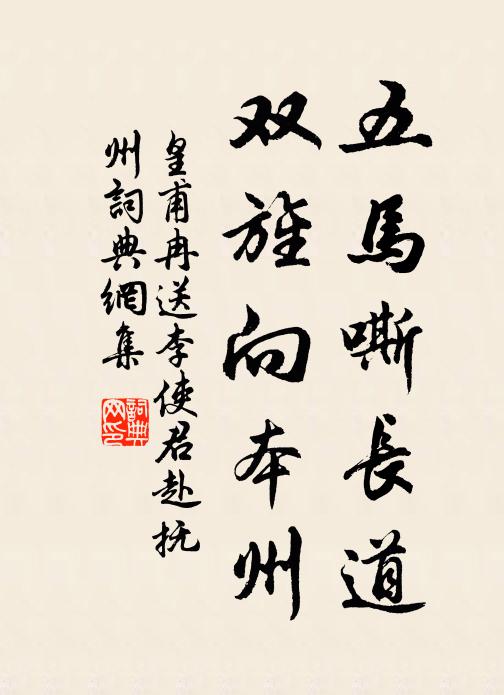 五馬嘶長道
双旌向本州
皇甫冉送李使君赴抚
州詞典網集
詞典
网印